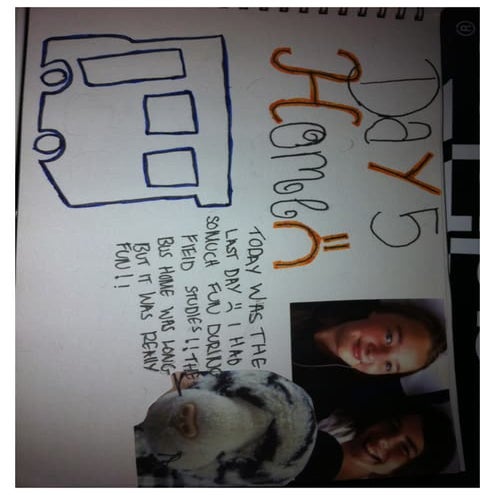 DAY 5
Home :(
TODAY WAS THE
LAST DAY :( I HAD
SO MUCH FUN DURING
FIELD STUDIES!! THE
BUS HOME WAS LONG
BUT IT WAS REALLY
FUN!!